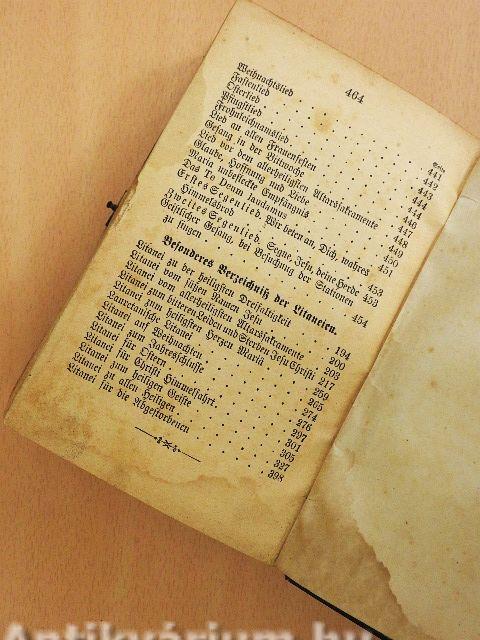 464
Seite
Weihnachtslied . . . 441
Fastenlied . . . 442
Osterlied . . . 443
Pfingstlied . . . 444
Frohnleichnamslied . . . 444
Lied an allen Frauenfesten . . . 446
Gesang in der Bittwoche . . . 448
Lied vor dem allerheiligsten Altarssakramente . . . 449
Glaube, Hoffnung und Liebe . . . 450
Maria unbefleckte Empfängnis . . . 451
Das Te Deum laudamus
Erstes Segenlied. Wir beten an, Dich, wahres
Himmelsbrod . . . 453
Zweites Segenlied. Segne, Jesu, deine Herde 453
Geistlicher Gesang, bei Besuchung der Stationen
zu singen . . . 454
Besonderes Verzeichniß der Litaneien.
Litanei zu der heiligsten Dreifaltigkeit . . . 194
Litanei vom süßen Namen Jesu . . . 200
Litanei vom allerheiligsten Altarssakramente . . . 203
Litanei zum bitteren Leiden und Sterben Jesu Christi 217
Litanei zum heiligsten Herzen Mariä . . . 259
Lauretanische Litanei . . . 265
Litanei auf Weihnachten . . . 274
Litanei zum Jahresschlusse . . . 276
Litanei für Ostern . . . 297
Litanei für Christi Himmelfahrt. . . . 301
Litanei zum heiligen Geiste . . . 305
Litanei zu allen Heiligen . . . 327
Litanei für die Abgestorbenen . . . 398
Antikvárium.hu